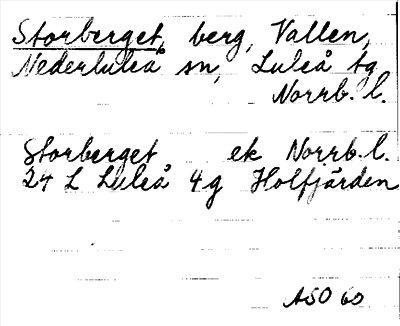 Storberget, berg, Vallen,
Nederluleå sn, Luleå tg
Norrb. l.
Storberget ek Norrb. l.
24 L Luleå 4g Holfjärden
ASO 60